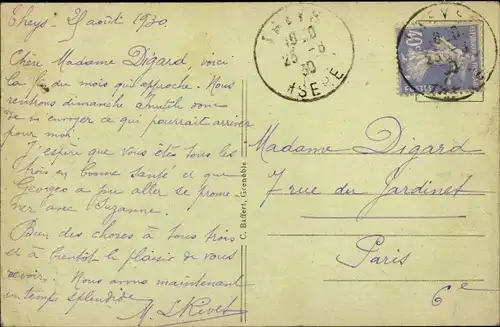 Theys 25 août 1930
Chère Madame Digard, voici
la fin du mois qui approche. Nous
rentrons dimanche, inutile donc
de m'envoyer ce qui pourrait arriver
pour moi.
J'espère que vous êtes tous les
trois en bonne santé et que
Georges a pu aller se prome-
ner avec Suzanne.
Bien des choses à tous trois
et à bientôt le plaisir de vous
revoir. Nous avons maintenant
un temps splendide.
M.
C. Baffert, Grenoble
THEYS
30
ISERE
40c
THEYS
30
Madame Digard
7 rue du Jardinet
Paris
6e